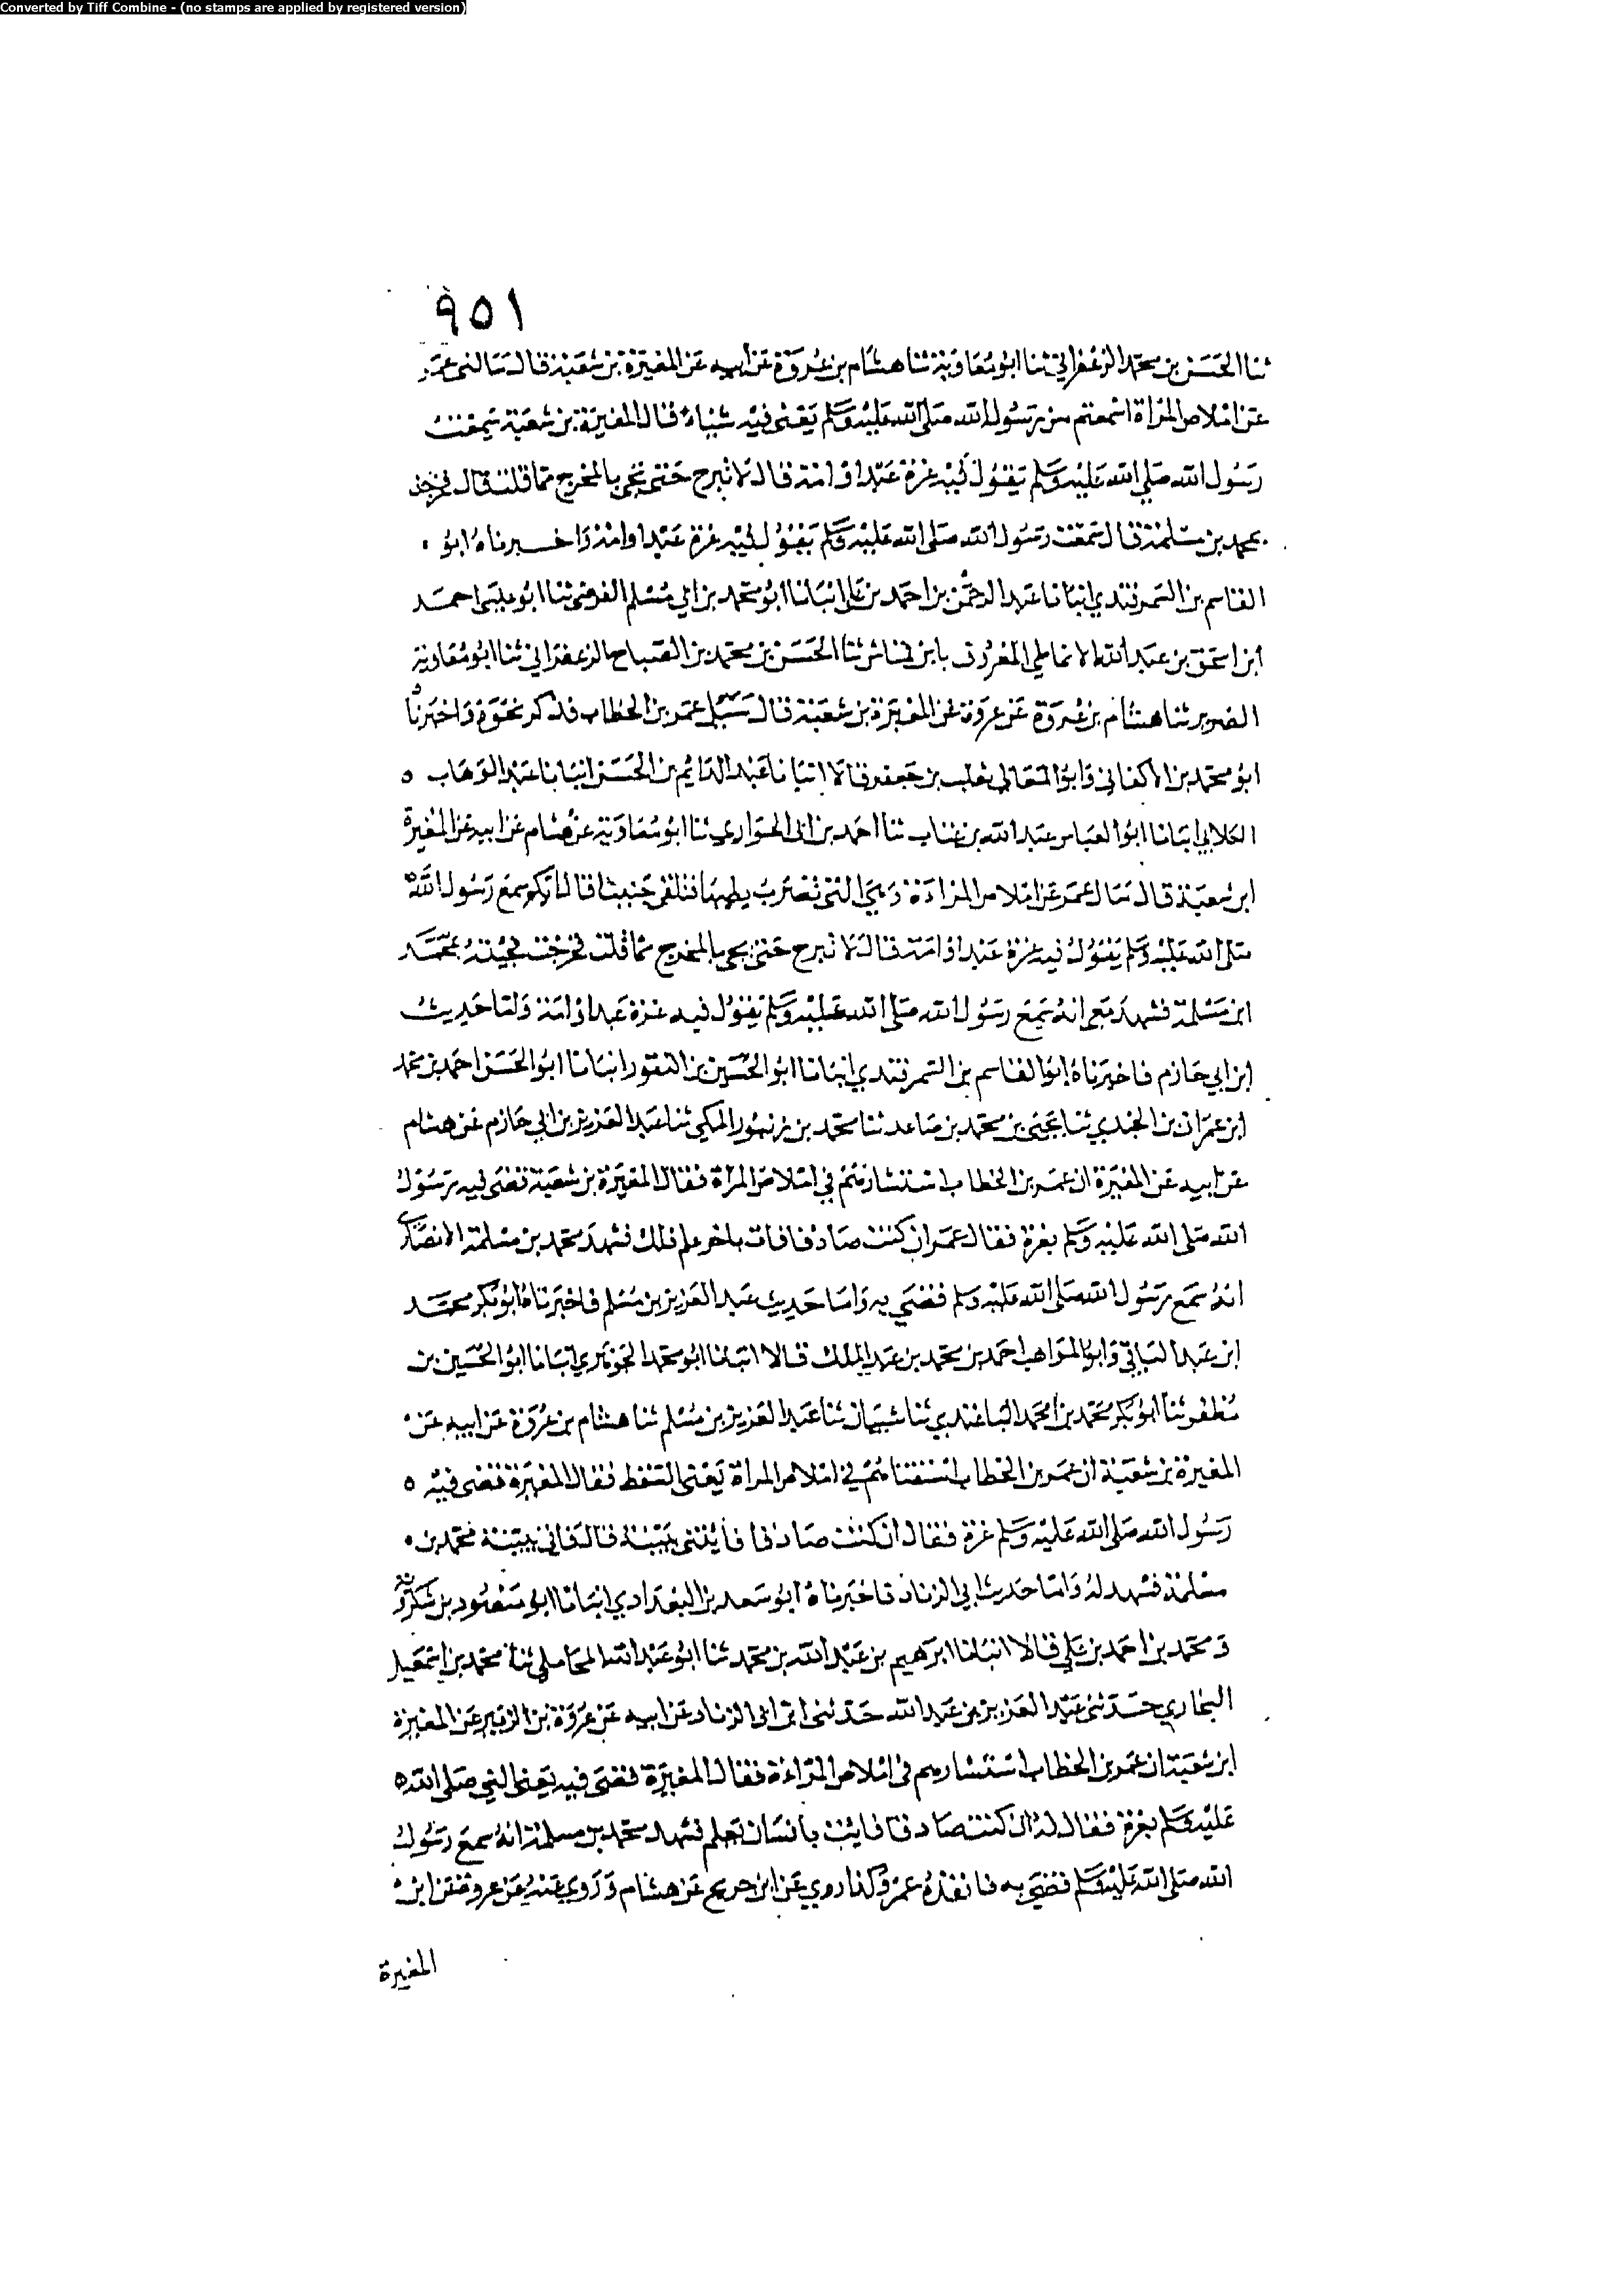 Converted by Tiff Combine - (no stamps are applied by registered version)
٩٥١
ثنا الحسن بن محمد الزعفراني ثنا ابو معاوية ثنا هشام بن عروة عن ابيه عن المغيرة بن شعبة قال سالنى عمر
عن املاص المراة اسمعتم من رسول الله صلى الله عليه وسلم يقضى فيه شيئا قال المغيرة بن شعبة سمعت
رسول الله صلى الله عليه وسلم يقول فيه غرة عبد او امة قال لا تبرح حتى تجى بالمخرج مما قلت قال فخرجت
بمحمد بن مسلمة قال سمعت رسول الله صلى الله عليه وسلم يقول فيه غرة عبد او امة واخبرناه ابو
القاسم بن السمرقندي انبانا عبد الرحمن بن احمد بن على انبانا ابو محمد بن ابي مسلم الفرضى ثنا ابو عيسى احمد
ابن اسحق بن عبد الله الانماطي المعروف بابن قماش ثنا الحسن بن محمد بن الصباح الزعفراني ثنا ابو معاوية
الضرير ثنا هشام بن عروة عن عروة عن المغيرة بن شعبة قال سئل عمر بن الخطاب فذكر نحوه واخبرنا
ابو محمد بن الاكفاني وابو المعالي ثعلب بن جعفر قالا انبانا عبد الدائم بن الحسن انبانا عبد الوهاب
الكلابي انبانا ابو العباس عبد الله بن عتاب ثنا احمد بن ابى الحواري ثنا ابو معاوية عن هشام عن ابيه عن المغيرة
ابن شعبة قال سال عمر عن املاص المراءة وهي التى تضرب بطنها فتلقى جنينا قال ايكم سمع رسول الله
صلى الله عليه وسلم يقول فيه غرة عبد او امة قال لا تبرح حتى تجى بالمخرج مما قلت فخرجت فجئته بمحمد
ابن مسلمة فشهد معى انه سمع رسول الله صلى الله عليه وسلم يقول فيه غرة عبد او امة واما حديث
ابن ابي حازم فاخبرناه ابو القاسم بن السمرقندي انبانا ابو الحسين بن النقور انبانا ابو الحسن احمد بن محمد
ابن عمران بن الجندي ثنا يحيى بن محمد بن صاعد ثنا محمد بن زنبور المكي ثنا عبد العزيز بن ابي حازم عن هشام
عن ابيه عن المغيرة ان عمر بن الخطاب استشارهم في املاص المراة فقال المغيرة بن شعبة قضى فيه رسول
الله صلى الله عليه وسلم بغرة فقال عمر ان كنت صادقا فات باخر علم ذلك فشهد محمد بن مسلمة الانصاري
انه سمع رسول الله صلى الله عليه وسلم فقضى به واما حديث عبد العزيز بن مسلم فاخبرناه ابو بكر محمد
ابن عبد الباقي وابو المواهب احمد بن محمد بن عبد الملك قالا انبانا ابو محمد الجوهري انبانا ابو الحسين بن
مظفر ثنا ابو بكر محمد بن محمد الباغندي ثنا شيبان ثنا عبد العزيز بن مسلم ثنا هشام بن عروة عن ابيه عن
المغيرة بن شعبة ان عمر بن الخطاب استفتاهم في املاص المراة يعنى السقط فقال المغيرة قضى فيه
رسول الله صلى الله عليه وسلم غرة فقال ان كنت صادقا فأيتنى ببينة قال فاني ببينة محمد بن
مسلمة فشهد له واما حديث ابي الزناد فاخبرناه ابو سعد بن البغدادي انبانا ابو مسعود بن شكرويه
ومحمد بن احمد بن علي قالا انبانا ابرهيم بن عبد الله بن محمد ثنا ابو عبد الله المحاملي ثنا محمد بن اسمعيل
البخاري حدثنى عبد العزيز بن عبد الله حدثنى ابن ابى الزناد عن ابيه عن عروة بن الزبير عن المغيرة
ابن شعبة ان عمر بن الخطاب استشارهم فى املاص المراءة فقال المغيرة قضى فيه يعنى النبي صلى الله
عليه وسلم بغرة فقال له ان كنت صادقا فايت بانسان يعلم فشهد محمد بن مسلمة انه سمع رسول
الله صلى الله عليه وسلم قضى به فانفذه عمر وكذا روي عن ابن جريج عن هشام وروي عنه عن عروة عن ابن
المغيرة